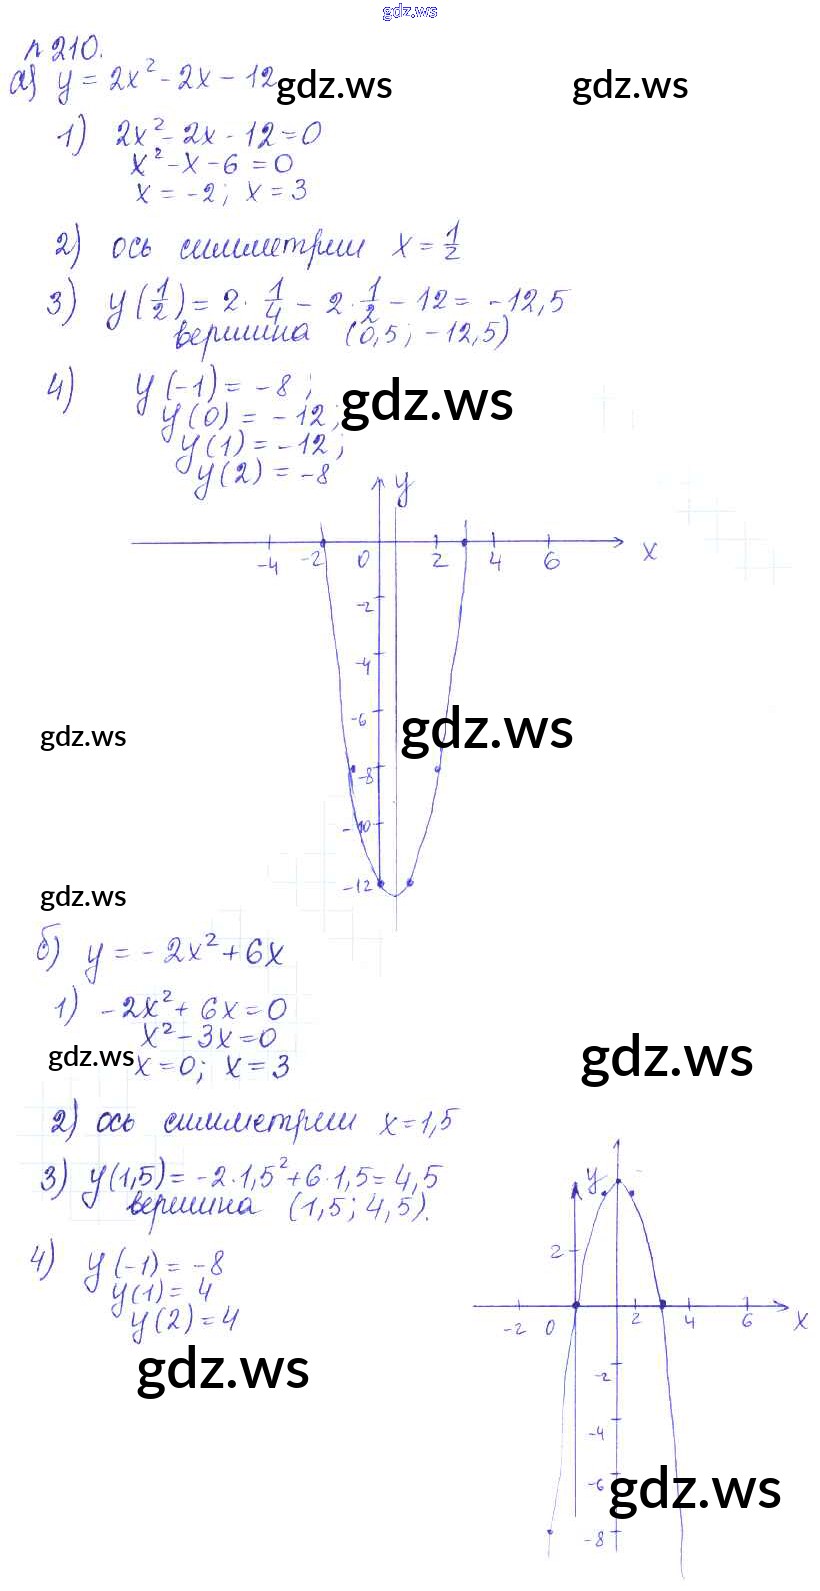 gdz.ws
№ 210.
а) y = 2x² - 2x - 12 gdz.ws gdz.ws
1) 2x² - 2x - 12 = 0
x² - x - 6 = 0
x = -2; x = 3
2) ось симметрии x = 1/2
3) y(1/2) = 2 · 1/4 - 2 · 1/2 - 12 = -12,5
вершина (0,5; -12,5)
4) y(-1) = -8;
gdz.ws
y(0) = -12;
y(1) = -12;
y(2) = -8
y
-4 -2 0 2 4 6 x
-2
-4
-6
gdz.ws gdz.ws
-8
-10
-12
gdz.ws
б) y = -2x² + 6x
1) -2x² + 6x = 0
x² - 3x = 0
gdz.ws gdz.ws
x = 0; x = 3
2) ось симметрии x = 1,5
3) y(1,5) = -2 · 1,5² + 6 · 1,5 = 4,5
вершина (1,5; 4,5).
4) y(-1) = -8
y(1) = 4
y(2) = 4
gdz.ws
y
2
-2 0 2 4 6 x
-2
-4
-6
gdz.ws
-8